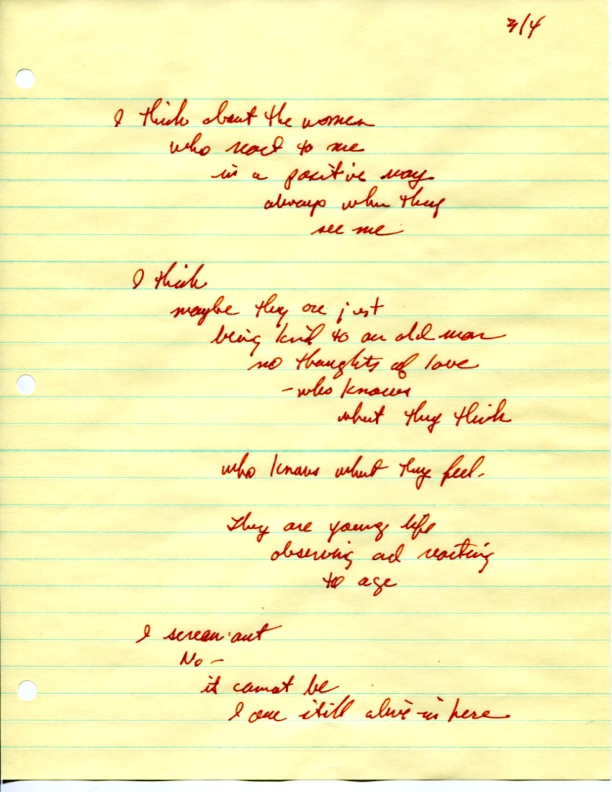 3/4
I think about the women
who react to me
in a positive way
always when they
see me
I think
maybe they are just
being kind to an old man
no thoughts of love
- who knows
what they think
who knows what they feel -
They are young life
observing and reacting
to age
I scream out
No -
it cannot be
I am still alive in here